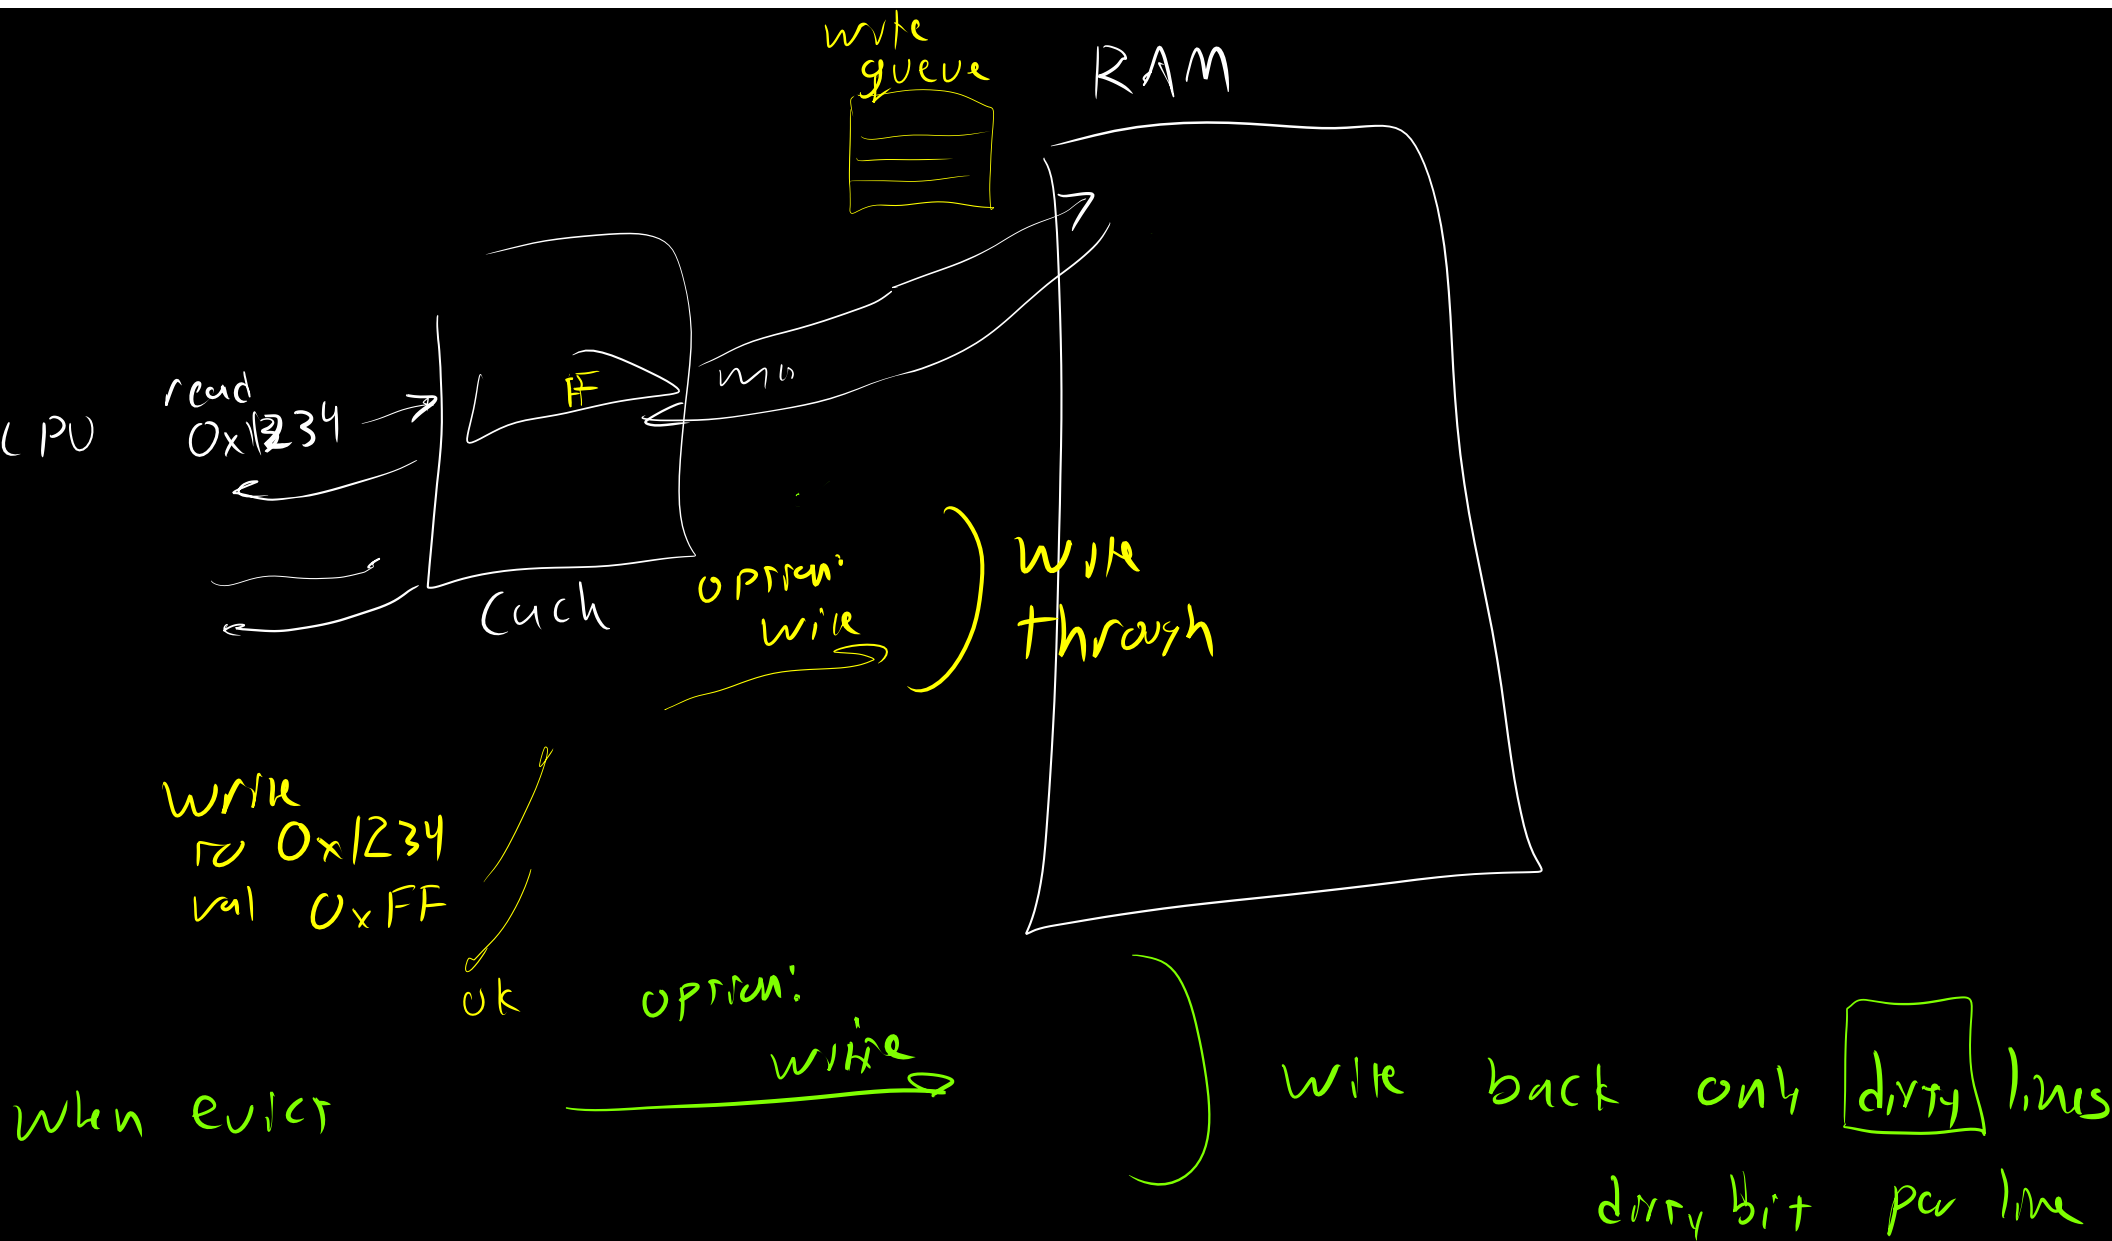 write
queue
RAM
read
CPU 0x1234
FF
Cach
option:
write
write
through
write
to 0x1234
val 0xFF
ok
option:
write
when evict
write back only dirty lines
dirty bit per line